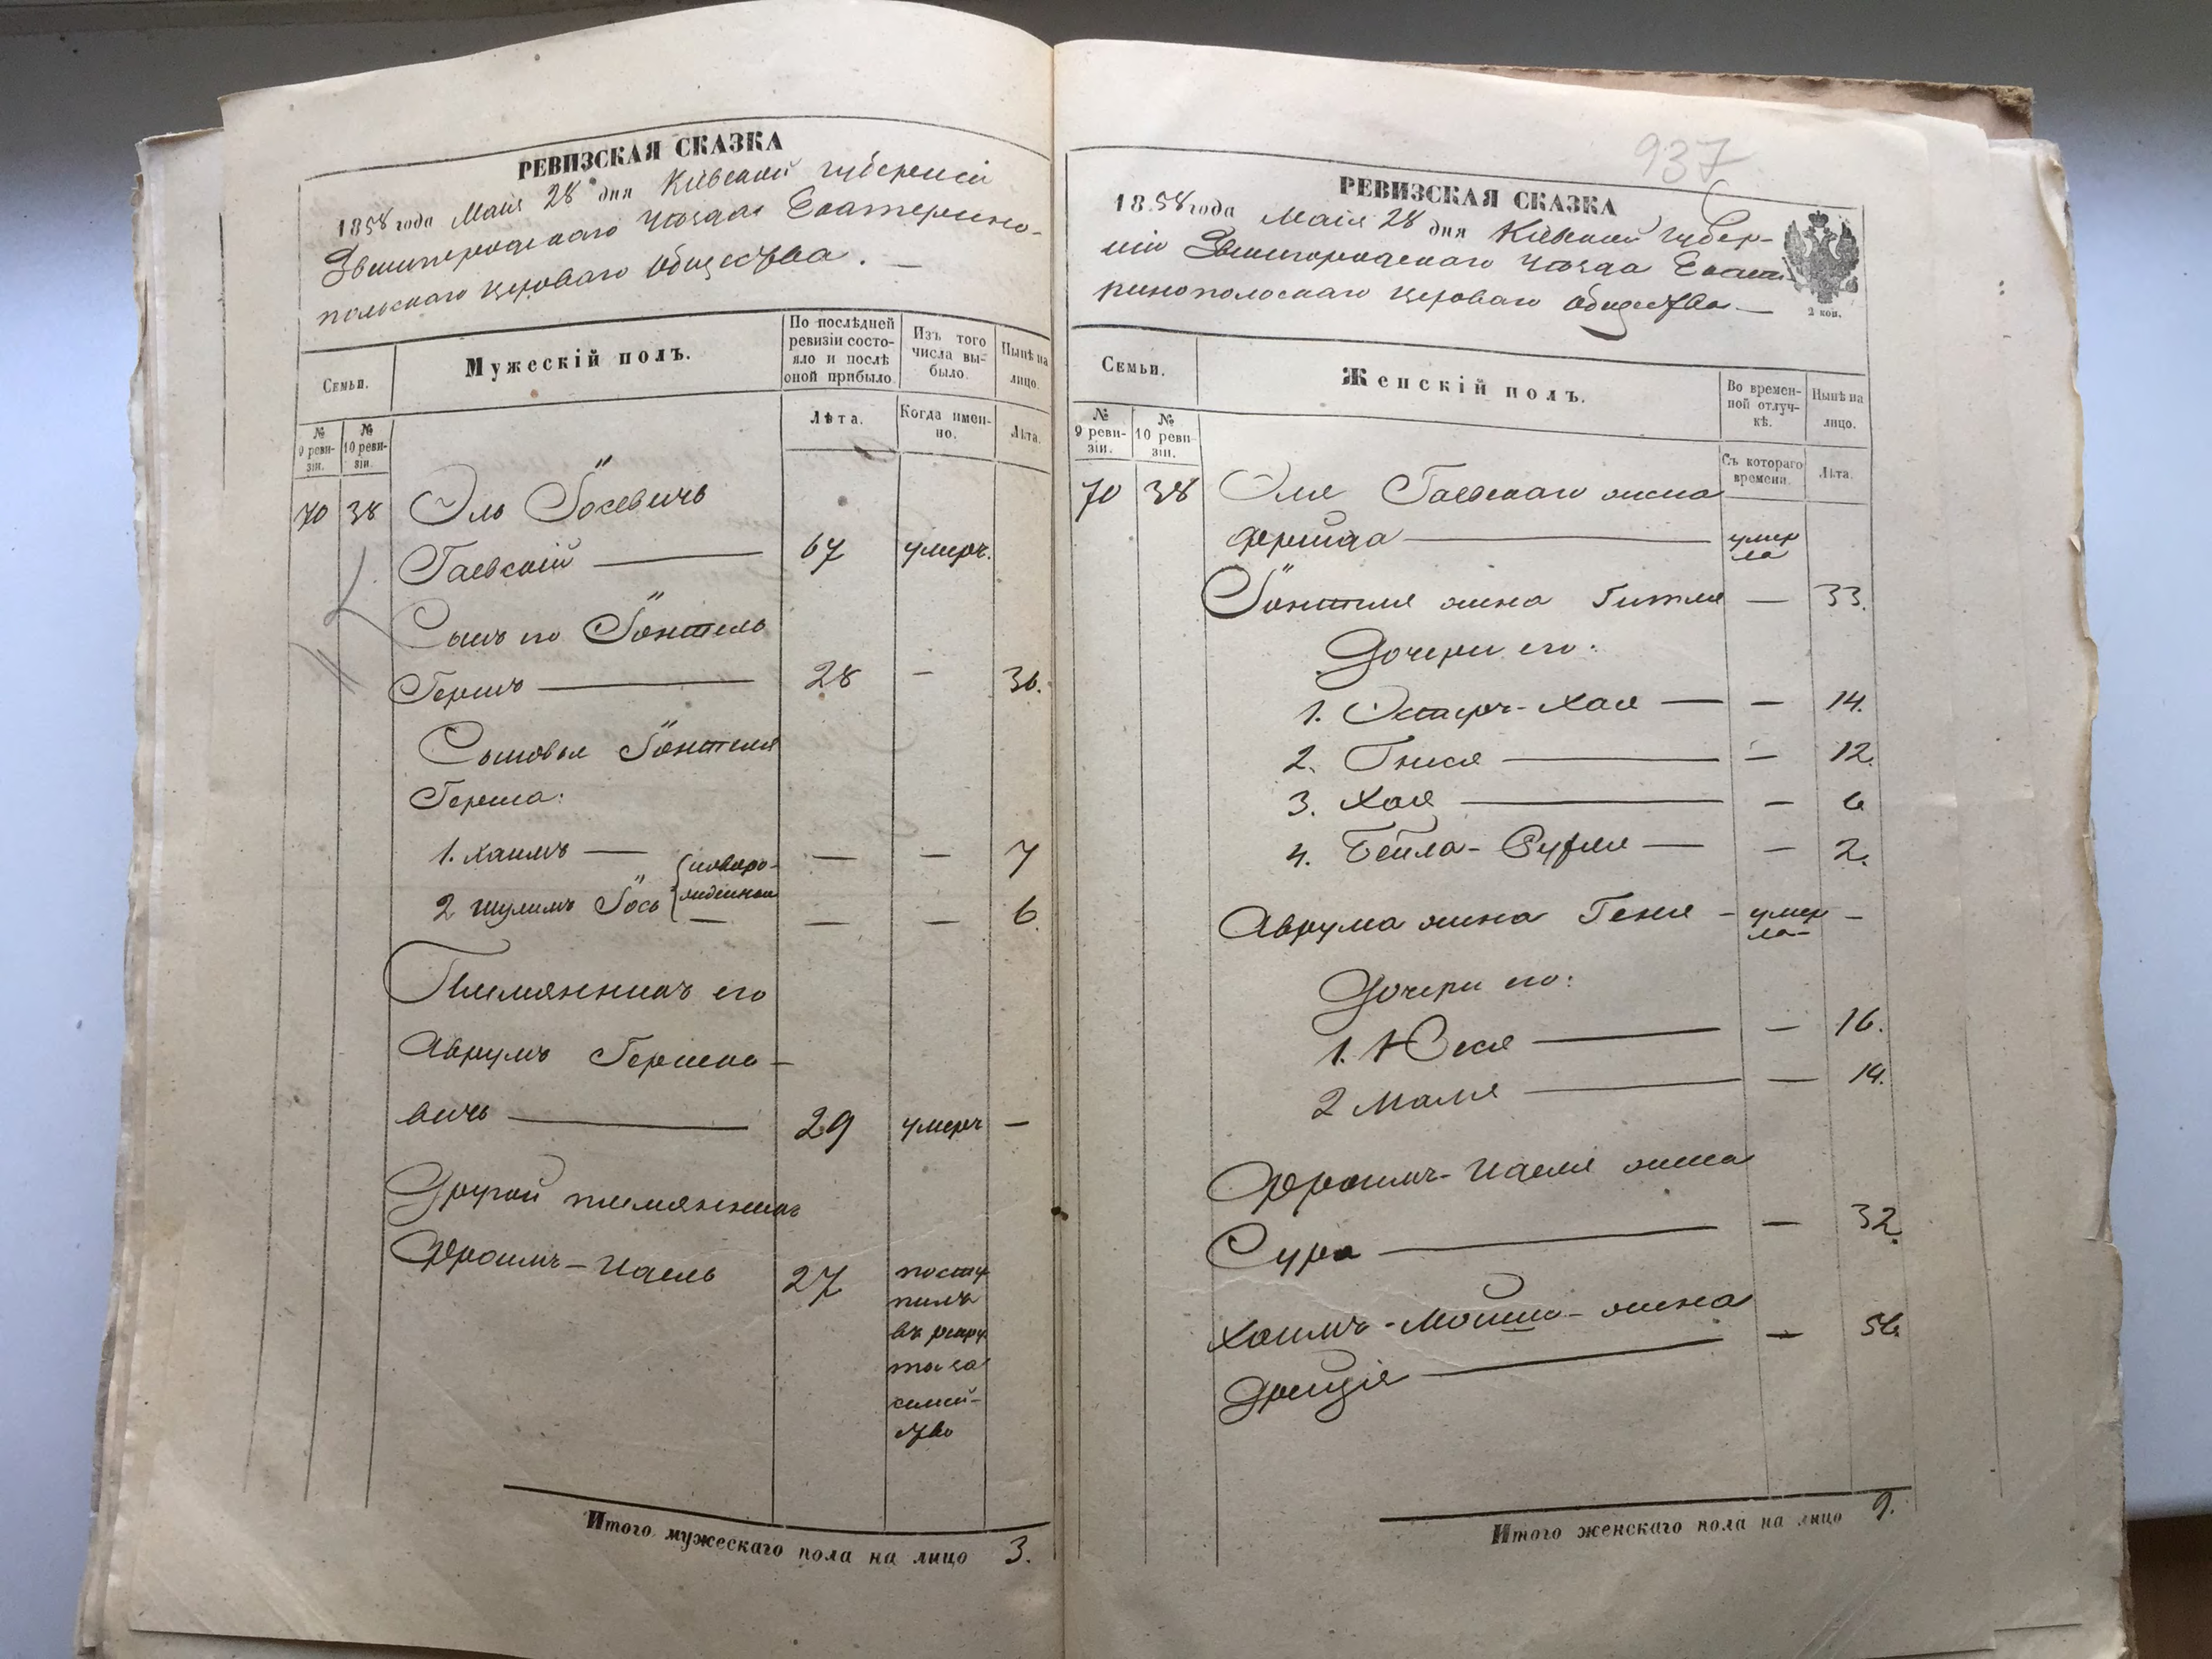 РЕВИЗСКАЯ СКАЗКА
1858 года Маія 28 дня Кіевской губерніи
Звенигородскаго уѣзда Екатерино-
польскаго
общества. —
Семьи.
Мужескій полъ.
По послѣдней ревизіи состо-яло и послѣ оной прибыло.
Изъ того числа вы-было.
Нынѣ на лицо.
№ 9 реви-зіи.
№ 10 реви-зіи.
Лѣта.
Когда имен-но.
Лѣта.
70 38 Эль Іосевичъ
Гаевскій — 67 умеръ.
Сынъ его Іонтель
Гершъ — 28 — 36.
Сыновья Іонтеля
Герша:
1. Хаимъ — новоро- — — 7
2 Шулимъ Іось жденные — — — 6.
Племянникъ его
Аврумъ Гершко-
вичъ — 29 умеръ —
Другой племянникъ
Фроимъ-Ицель 27 посту
пилъ
въ рекру
та за
семей-
ство
Итого мужескаго пола на лицо 3.
937
РЕВИЗСКАЯ СКАЗКА
1858 года Маія 28 дня Кіевской губер-
ніи Звенигородскаго уѣзда Екате-
ринопольскаго общества —
2 коп.
Семьи.
Женскій полъ.
Во времен-ной отлуч-кѣ.
Нынѣ на лицо.
№ 9 реви-зіи.
№ 10 реви-зіи.
Съ котораго времени.
Лѣта.
70 38 Эля Гаевскаго жена
Фрейда — умер
ла
Іонтеля жена Гитля — 33.
Дочери его:
1. Эстеръ-Хая — — 14.
2. Гнися — — 12.
3. Хая — — 6
4. Бейла-Рухля — — 2.
Аврума жена Геня — умер —
ла —
Дочери его:
1. Юся — — 16.
2 Маля — — 14.
Фроимъ-Ицеля жена
Сура — — 32.
Хаимъ-Мошко- жена
— — 56.
Итого женскаго пола на лицо 9.